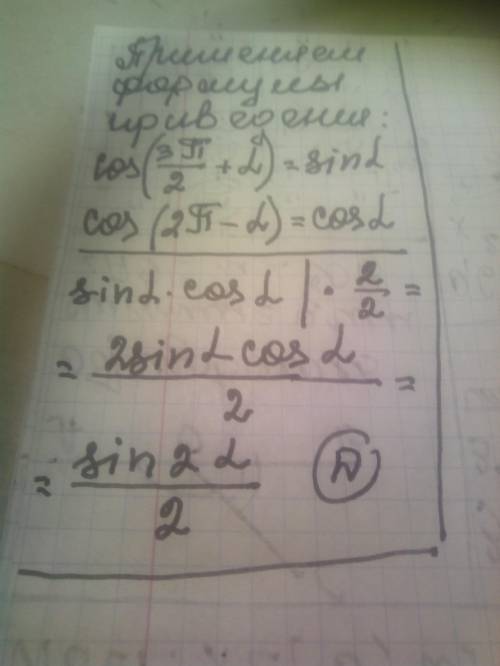 Применяем
формулы
приведения:
cos(3π/2 + α) = sinα
cos(2π - α) = cosα
sinα · cosα | · 2/2 =
= 2sinα cosα / 2 =
= sin2α / 2